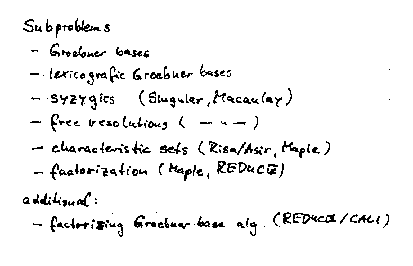 Subproblems
- Groebner bases
- lexicografic Groebner bases
- syzygies (Singular, Macaulay)
- free resolutions ( — " — )
- characteristic sets (Risa/Asir, Maple)
- factorization (Maple, REDUCE)
additional:
- factorizing Groebner base alg. (REDUCE/CALI)